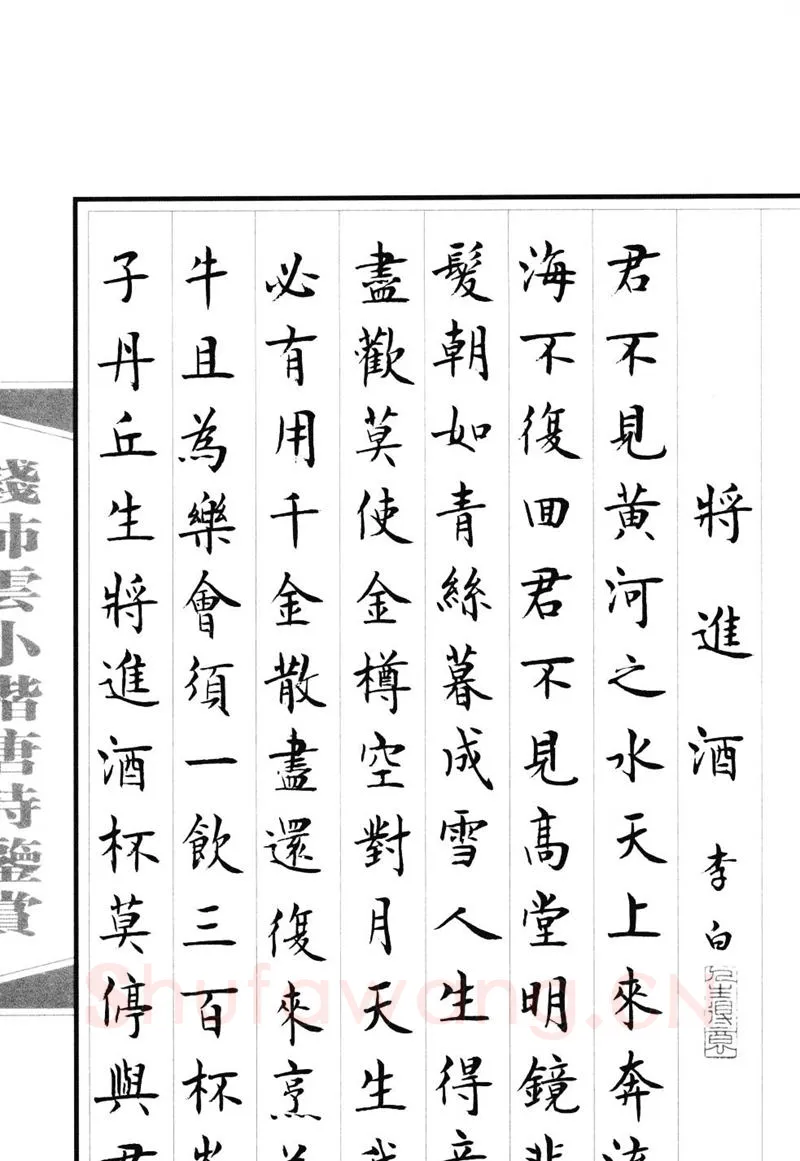 將進酒 李白
君不見黃河之水天上來奔
海不復囬君不見高堂明鏡
髮朝如青絲暮成雪人生得
盡歡莫使金樽空對月天生
必有用千金散盡還復來烹
牛且為樂會須一飲三百杯
子丹丘生將進酒杯莫停與
錢沛雲小楷唐詩鑒賞
Shufawang.CN